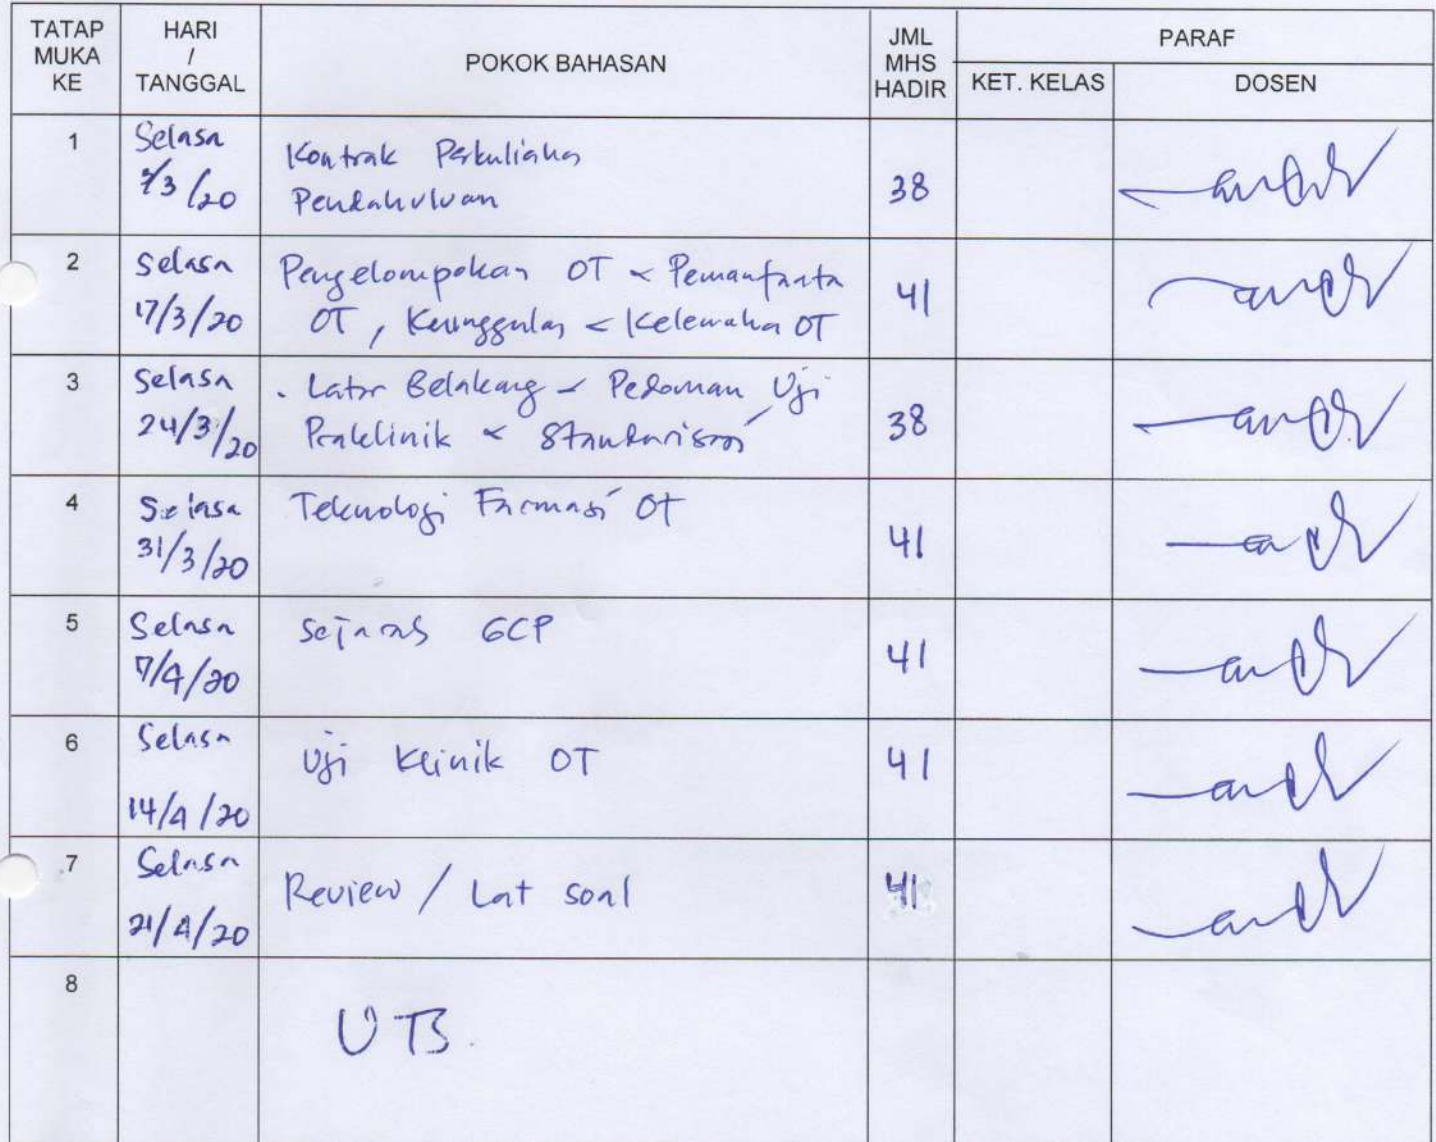 TATAP MUKA KE
HARI / TANGGAL
POKOK BAHASAN
JML MHS HADIR
PARAF
KET. KELAS
DOSEN
1
Selasa
/3/20
Kontrak Perkuliahan
Pendahuluan
38
2
Selasa
17/3/20
Pengelompokan OT & Pemanfaata
OT, Keunggulan & Kelemaha OT
41
3
Selasa
24/3/20
. Latar Belakang & Pedoman Uji
Praklinik & Standarisasi
38
4
Selasa
31/3/20
Teknologi Farmasi OT
41
5
Selasa
7/4/20
Sejarah GCP
41
6
Selasa
14/4/20
Uji Klinik OT
41
7
Selasa
21/4/20
Review / Lat soal
41
8
UTS